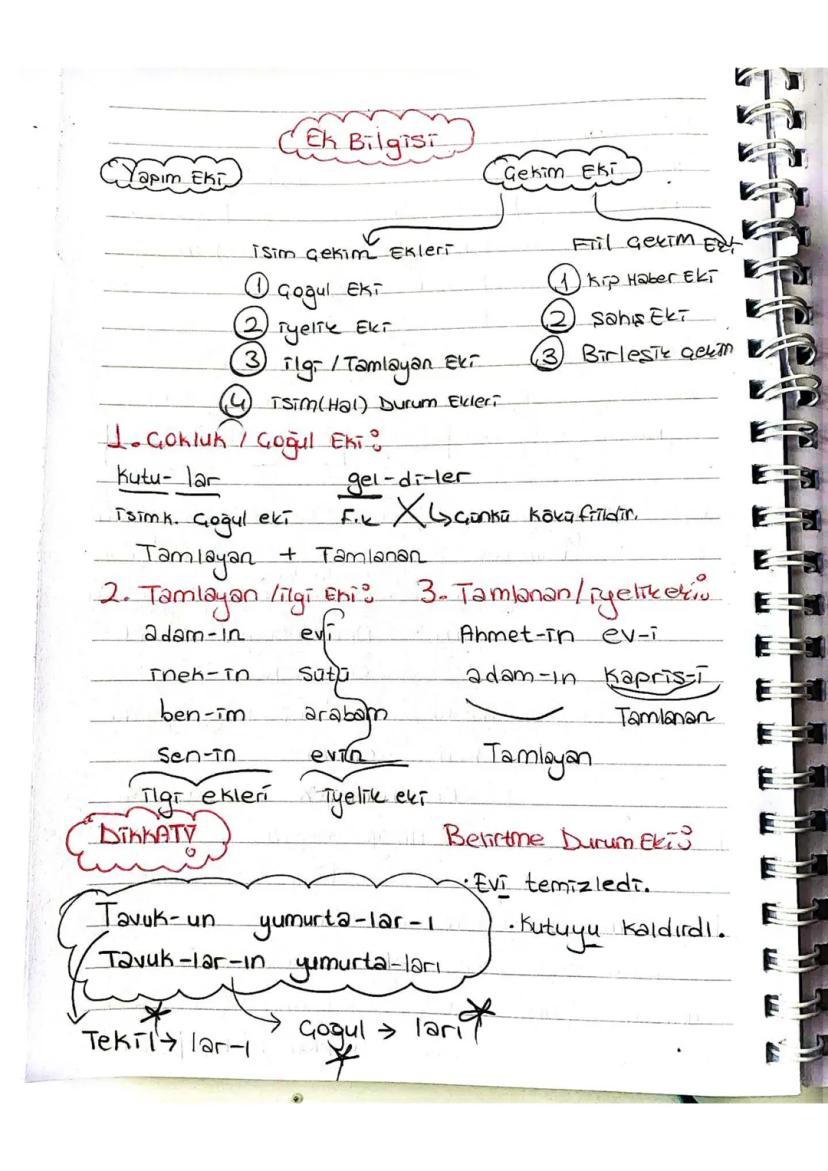 Ek Bilgisi
Yapım Eki
Çekim Eki
isim çekim Ekleri
Fiil çekim Eki
1 Çoğul Eki
1 Kip Haber Eki
2 iyelik Eki
2 Şahıs Eki
3 ilgi / Tamlayan Eki
3 Birleşik çekim
4 isim(Hal) Durum Ekleri
1. Çokluk / Çoğul Eki:
kutu- lar gel-di-ler
isim k. Çoğul eki F.k X ↳ Çünkü kökü fiildir.
Tamlayan + Tamlanan
2. Tamlayan /ilgi Eki: 3. Tamlanan/iyelik eki:
adam-ın evi Ahmet-in ev-i
inek-in sütü adam-ın kapris-i
ben-im arabam Tamlanan
sen-in evin Tamlayan
ilgi ekleri iyelik eki
DİKKAT!
Belirtme Durum Eki:
·Evi temizledi.
Tavuk-un yumurta-lar-ı
·Kutuyu kaldırdı.
Tavuk-lar-ın yumurta-ları
Tekil → lar-ı
Çoğul → ları